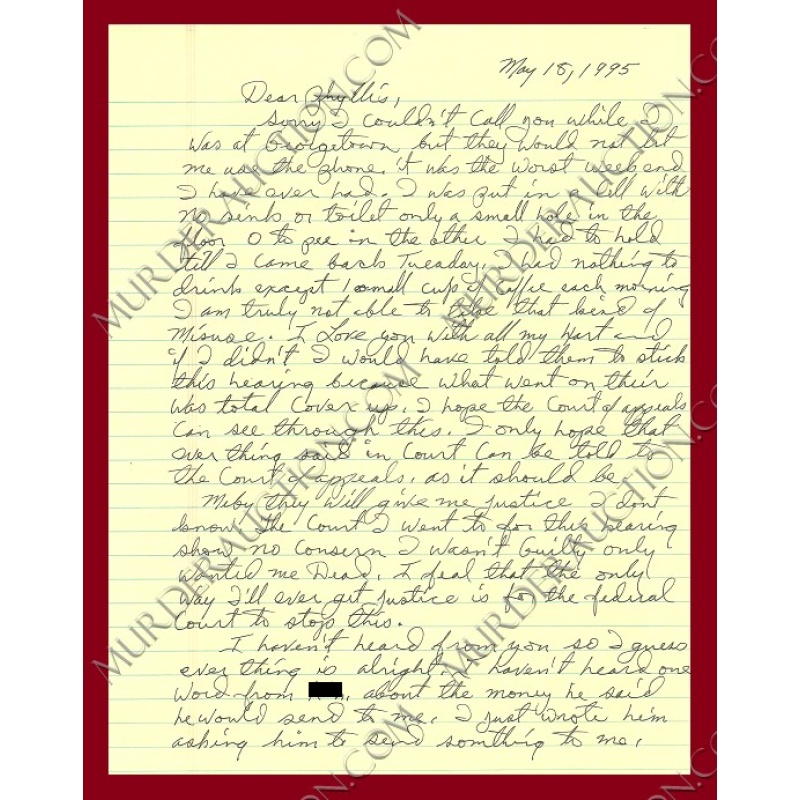 May 18, 1995
Dear Phyllis,
Sorry I couldn't call you while I
was at Georgetown but they would not let
me use the phone. it was the worst weekend
I have ever had. I was put in a cell with
no sinks or toilet only a small hole in the
floor O to pee in the other I had to hold
till I came back Tuesday. I had nothing to
drink except 1 small cup of coffee each morning
I am truly not able to take that kind of
Misuse. I Love you with all my hart and
if I didn't I would have told them to stick
this hearing because what went on their
was total cover up. I hope the Court of appeals
can see through this. I only hope that
ever thing said in Court can be told to
the Court of appeals, as it should be.
Meby they will give me justice I dont
know. the Court I went to for this hearing
show no consern I wasn't Guilty only
wanted me Dead. I feal that the only
way I'll ever get justice is for the federal
Court to stop this.
I haven't heard from you so I guess
ever thing is alright. I haven't heard one
word from about the money he said
he would send to me. I just wrote him
asking him to send somthing to me.
MURDERAUCTION.COM